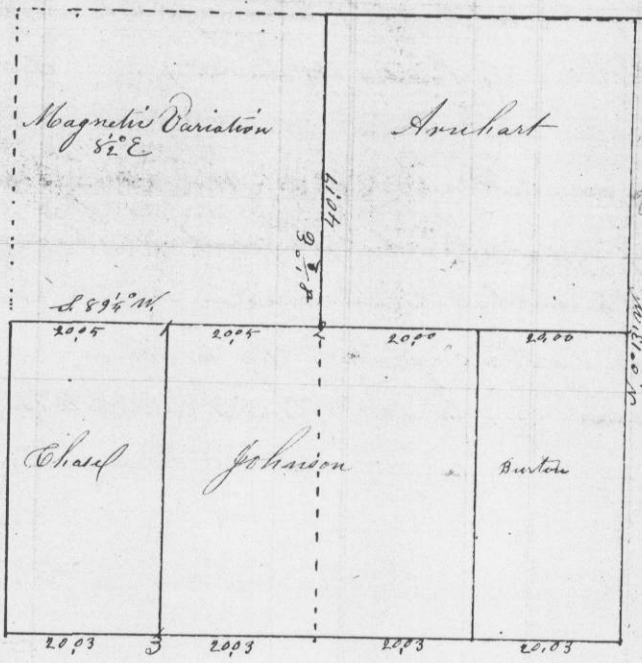 Magnetic Variation
8½° E
Arnhart
40,19
S ½° E
S. 89¼° W.
20,05
1
20,05
2
20,00
20,00
N 0° 13' W
Chasel
Johnson
Burton
20,03
3
20,03
20,03
20,03